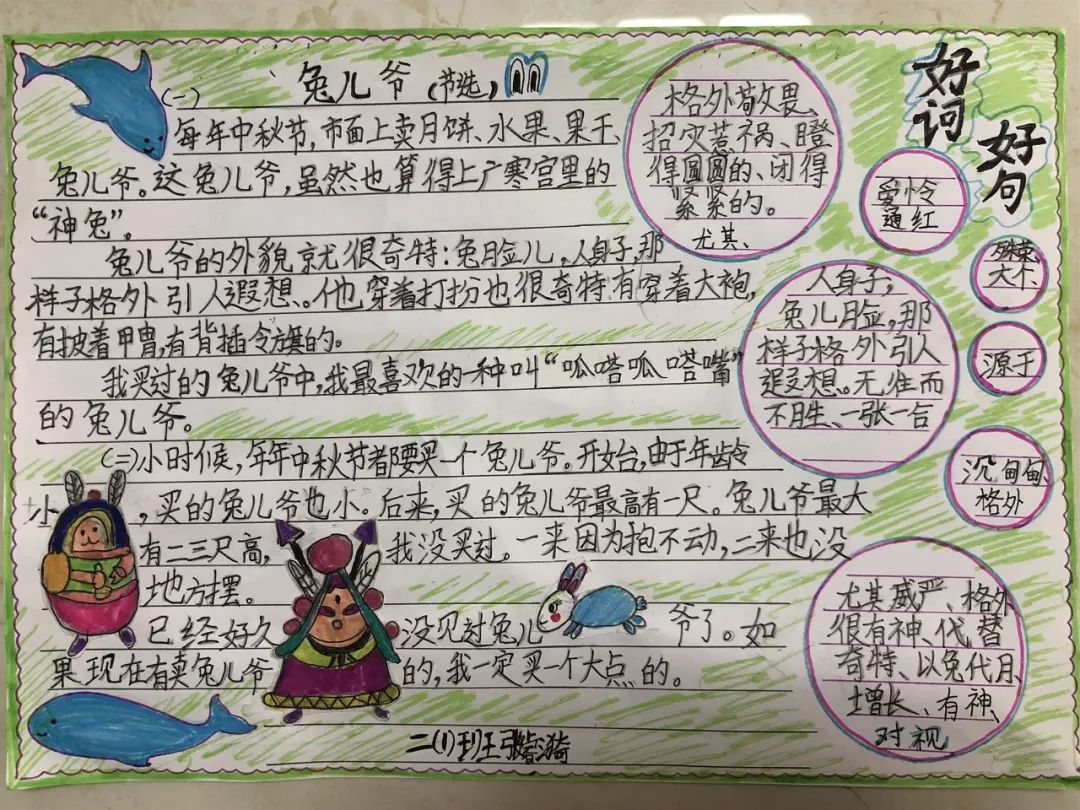 兔儿爷(节选)
(一)
每年中秋节,市面上卖月饼、水果、果干、
兔儿爷。这兔儿爷,虽然也算得上广寒宫里的
“神兔”。
兔儿爷的外貌就很奇特:兔脸儿,人身子,那
样子格外引人遐想、。他穿着打扮也很奇特有穿着大袍,
有披着甲胄,有背插令旗的。
我买过的兔儿爷中,我最喜欢的一种叫“呱嗒呱嗒嘴”
的兔儿爷。
(二)小时候,年年中秋节都要买一个兔儿爷。开始台,由于年龄
小,买的兔儿爷也小。后来,买的兔儿爷最高有一尺。兔儿爷最大
有一二三尺高,我没买过。一来因为抱不动,二来也没
地方摆。
已经好久没见过兔儿爷了。如
果现在有卖兔儿爷的,我一定买一个大点的。
二(1)班
好词
好句
格外敬畏、
招灾惹祸、瞪
得圆圆的、闭得
紧紧的。
尤其、
爱怜
通红
大个
人身子;
兔儿脸,那
样子格外引人
遐想、。无胫而
不月生、一张一合
源于
沉甸甸、
格外
尤其威严、格外
很有神、代替
奇特、以兔代月、
增长、有神、
对视